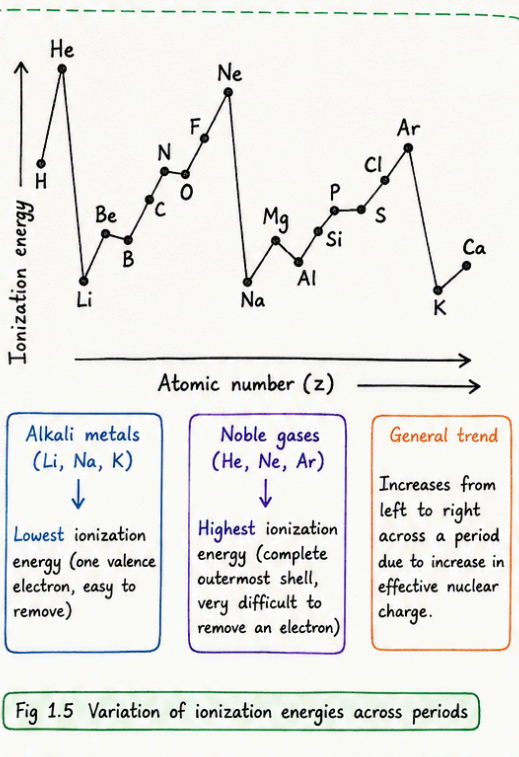 He
Ne
Ar
F
N
Cl
H
O
P
C
S
Be
Mg
Si
Ca
B
Al
Li
Na
K
Ionization energy
Atomic number (z)
Alkali metals
(Li, Na, K)
Lowest ionization
energy (one valence
electron, easy to
remove)
Noble gases
(He, Ne, Ar)
Highest ionization
energy (complete
outermost shell,
very difficult to
remove an electron)
General trend
Increases from
left to right
across a period
due to increase in
effective nuclear
charge.
Fig 1.5 Variation of ionization energies across periods